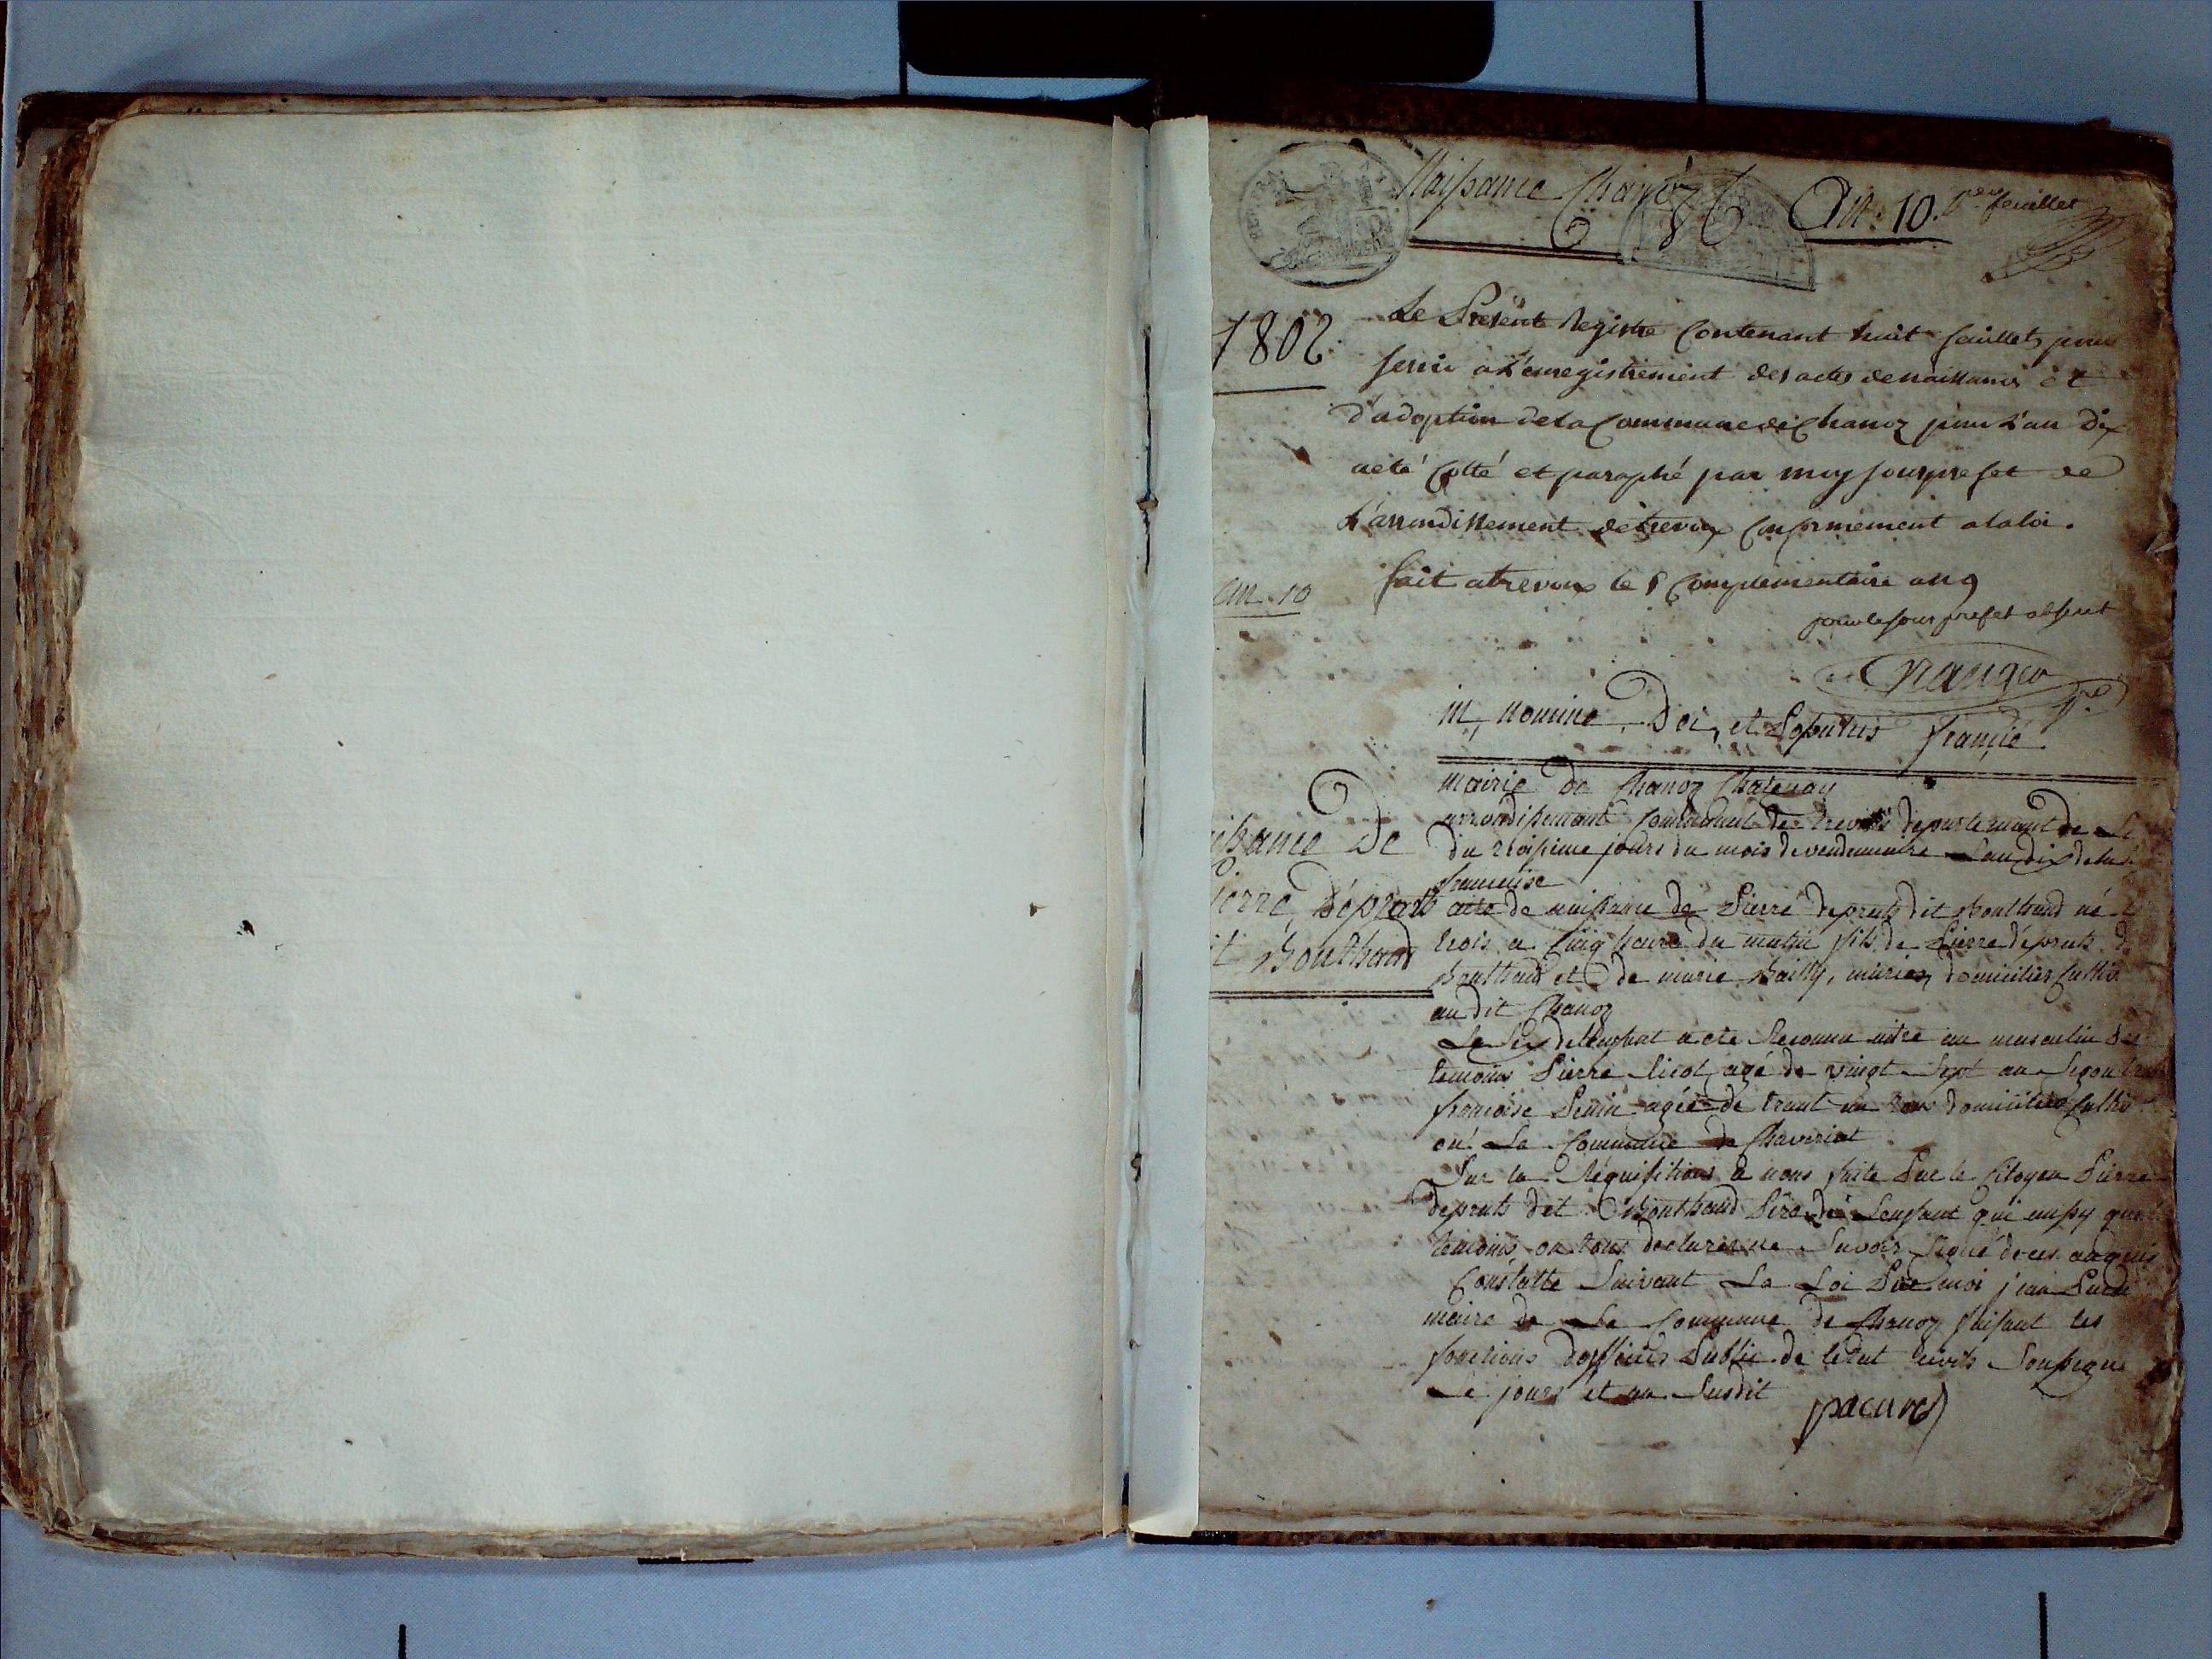 Naissance Chanoz An 10. 1er feuillet
1802
Le Présent Registre Contenant huit feuillets pour
servir a L'enregistrement des actes de naissances et
d'adoption de la Commune de Chanoz pour L'an Dix
a été Cotté et paraphé par moy souprefet de
L'arrondissement de trevoux Conformement a la loi.
fait a trevoux le 5 Complementaire an 9
An 10
pour le sous prefet absent
in nomine Dei, et Populus francie
mairie de Chanoz Chatenay
arrondissement Communal de trevoux departement de L
du troisieme jours du mois de vendemiaire Lan dix de la
francoise
issance De
ierre Déprost
it Bouthand
acte de naissance de Pierre deprats dit Bouthand né
trois a Cinq heure du matin fils de Pierre déprats d
bouthaud et de marie Bailly, mariez, domicilier
au dit Chanoz
Le Sex de Lenfant a ete Reconnu etre au masculin
temoins Pierre Licot agé de vingt Sept an Segon
francoise agée de trant an tous domicilier
en La Commune de Chaveriat
Sur la Réquisitions a nous faite Par le Citoyen Pierre
deprats dit Bouthand Pére de Lenfant qui aussy que
temoins on tous declarer ne Savoir Signé de ces enquis
Constatte Suivant La Loi Par moi
maire de La Commune de Chanoz faisant les
fonctions dofficier Public de letat civils Soussigne
Le jours et an Susdit